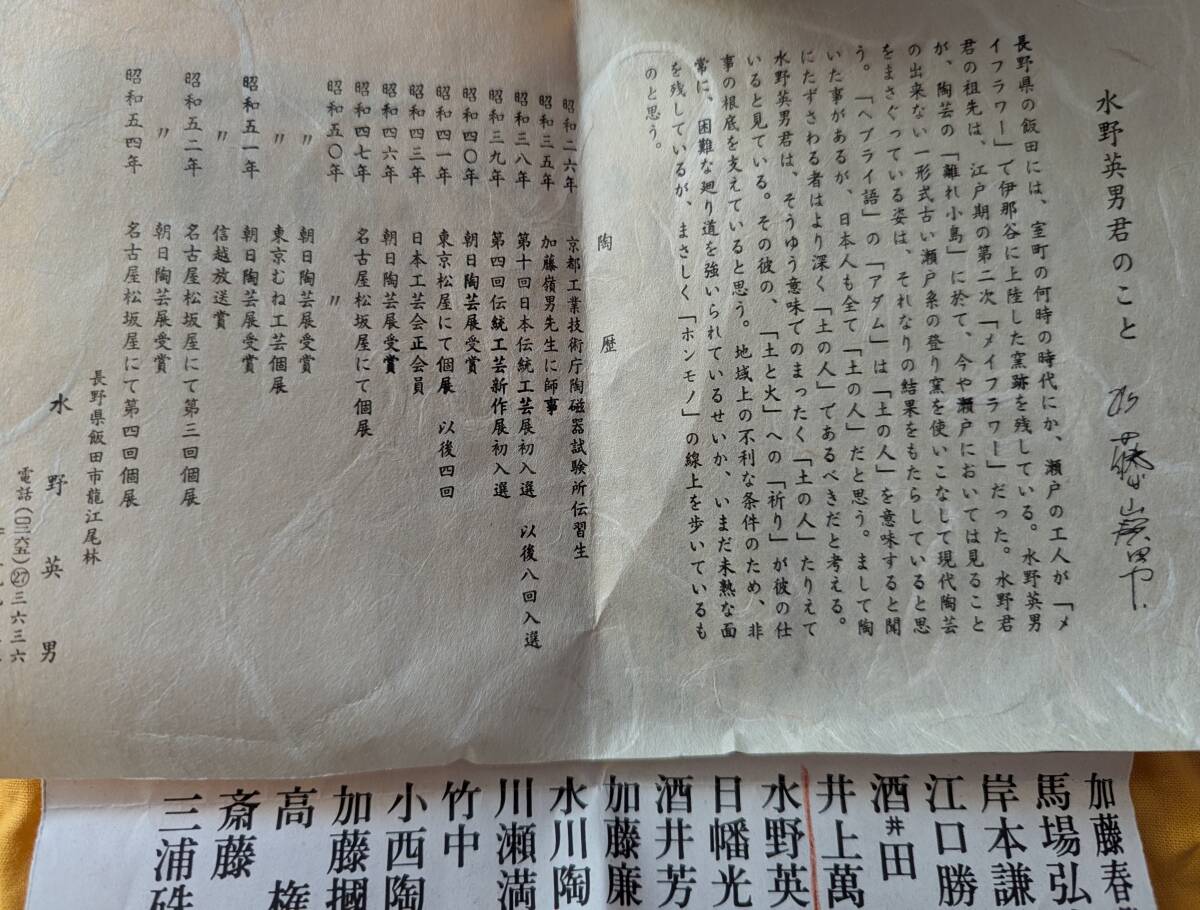 水野英男君のこと
加藤嶺男
長野県の飯田には、室町の何時の時代にか、瀬戸の工人が「メ
イフラワー」で伊那谷に上陸した窯跡を残している。水野英男
君の祖先は、江戸期の第二次「メイフラワー」だった。水野君
が、陶芸の「離れ小島」に於て、今や瀬戸においては見ること
の出来ない一形式古い瀬戸系の登り窯を使いこなして現代陶芸
をまさぐっている姿は、それなりの結果をもたらしていると思
う。「ヘブライ語」の「アダム」は「土の人」を意味すると聞
いた事があるが、日本人も全て「土の人」だと思う。まして陶
にたずさわる者はより深く「土の人」であるべきだと考える。
水野英男君は、そうゆう意味でのまったく「土の人」たりえて
いると見ている。その彼の、「土と火」への「祈り」が彼の仕
事の根底を支えていると思う。地域上の不利な条件のため、非
常に、困難な廻り道を強いられているせいか、いまだ未熟な面
を残しているが、まさしく「ホンモノ」の線上を歩いているも
のと思う。
陶歴
昭和二六年 京都工業技術庁陶磁器試験所伝習生
昭和三五年 加藤嶺男先生に師事
昭和三八年 第十回日本伝統工芸展初入選 以後八回入選
昭和三九年 第四回伝統工芸新作展初入選
昭和四〇年 朝日陶芸展受賞
昭和四一年 東京松屋にて個展 以後四回
昭和四三年 日本工芸会正会員
昭和四六年 朝日陶芸展受賞
昭和四七年 〃
昭和五〇年 名古屋松坂屋にて個展
〃 朝日陶芸展受賞
〃 東京むね工芸個展
昭和五一年 朝日陶芸展受賞
〃 信越放送賞
昭和五二年 名古屋松坂屋にて第三回個展
〃 朝日陶芸展受賞
昭和五四年 名古屋松坂屋にて第四回個展
長野県飯田市龍江尾林
水野英男
電話(〇二六五)㉗三六三六
加藤春
馬場弘
岸本謙
江口勝
酒井田
井上萬
水野英
日幡光
酒井芳
加藤廉
水川陶
川瀬満
竹中
小西陶
加藤摑
高権
斎藤
三浦硃